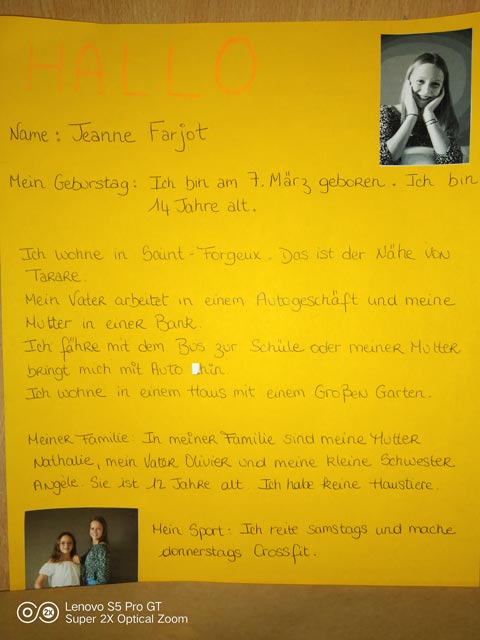 HALLO
Name : Jeanne Farjot
Mein Geburstag : Ich bin am 7. März geboren . Ich bin
14 Jahre alt.
Ich wohne in Saint-Forgeux . Das ist der Nähe von
Tarare.
Mein Vater arbeitet in einem Autogeschäft und meine
Mutter in einer Bank.
Ich fähre mit dem Bus zur Schüle oder meiner Mutter
bringt mich mit Auto hin.
Ich wohne in einem Haus mit einem Großen Garten.
Meiner Familie : In meiner Familie sind meine Mutter
Nathalie, mein Vater Olivier und meine kleine Schwester
Angèle. Sie ist 12 Jahre alt. Ich habe keine Haustiere.
Mein Sport : Ich reite samstags und mache
donnerstags Crossfit.
Lenovo S5 Pro GT
2X
Super 2X Optical Zoom